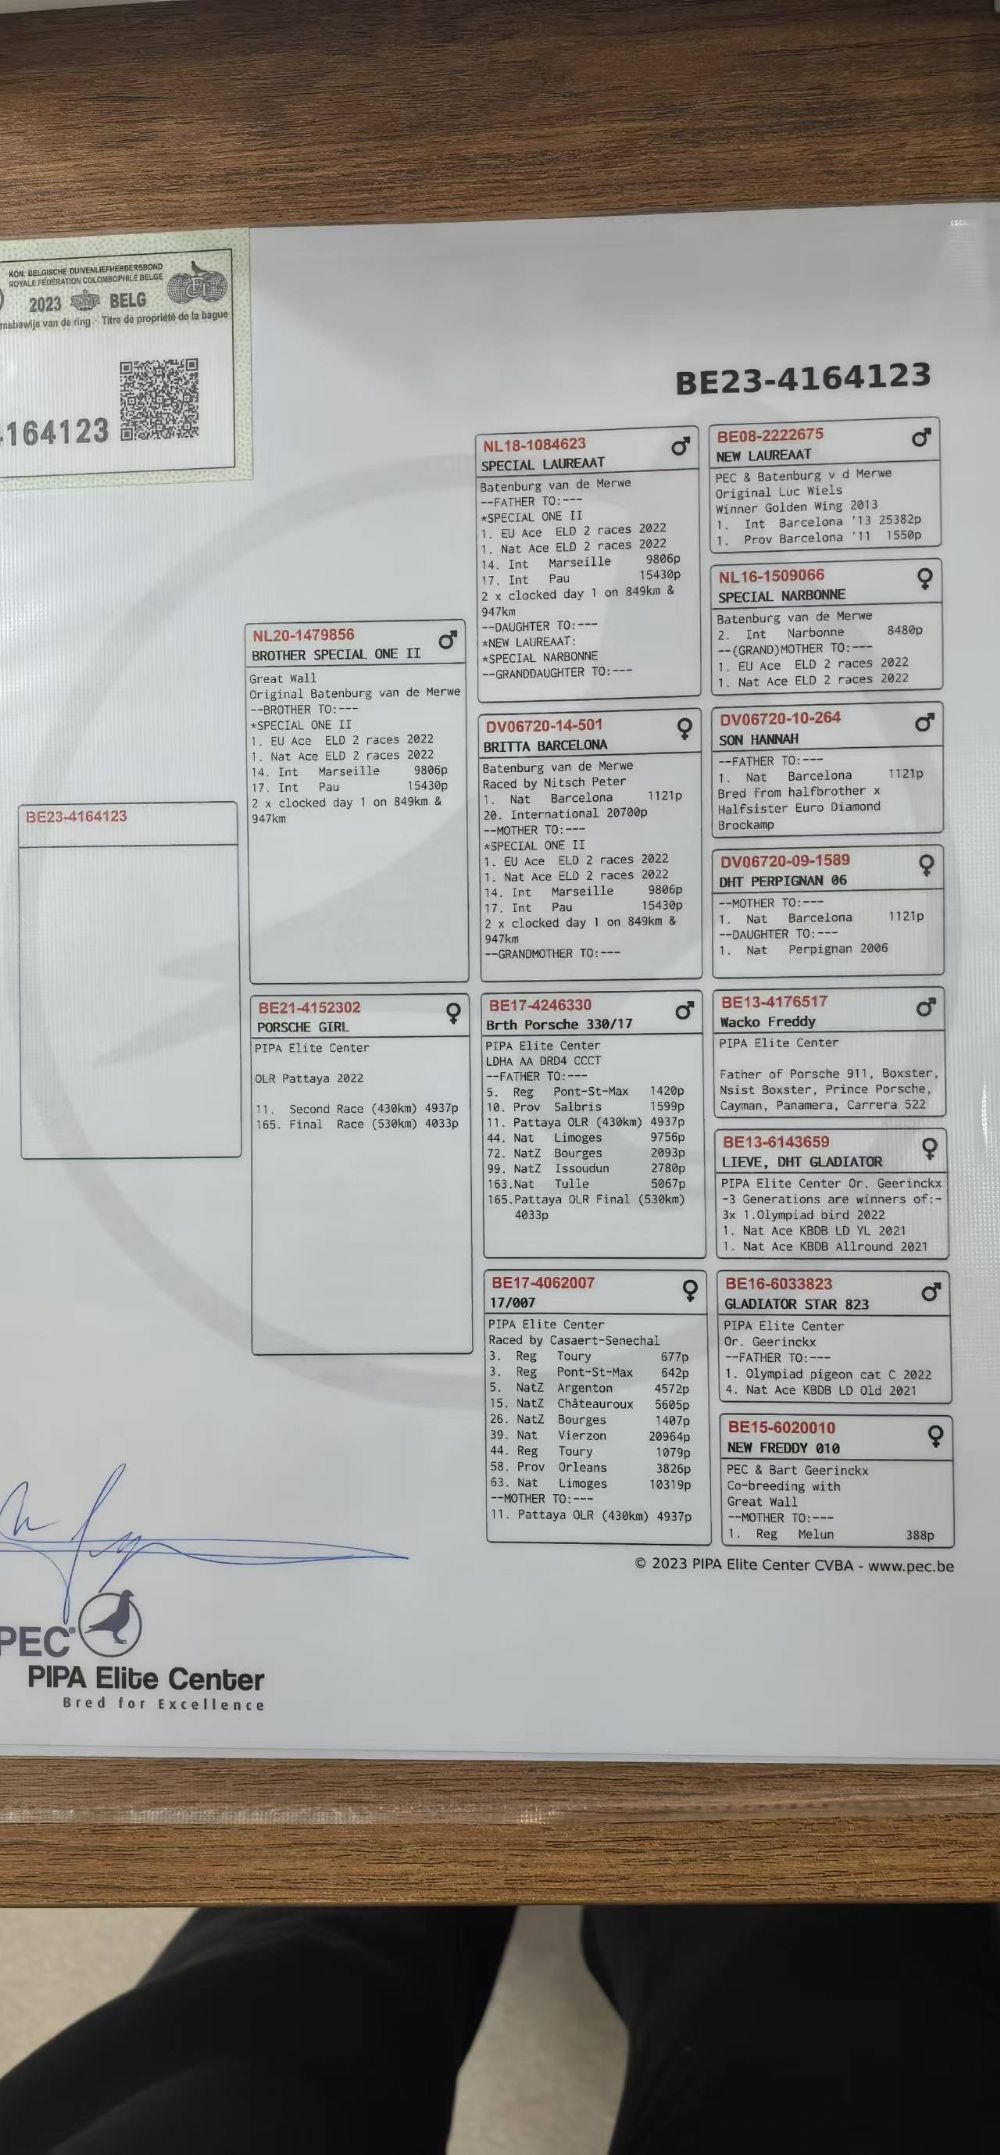 KON. BELGISCHE DUIVENLIEFHEBBERSBOND
ROYALE FÉDÉRATION COLOMBOPHILE BELGE
2023 BELG
msbewijs van de ring - Titre de propriété de la bague
4164123
BE23-4164123
BE23-4164123
NL20-1479856 ♂
BROTHER SPECIAL ONE II
Great Wall
Original Batenburg van de Merwe
--BROTHER TO:---
*SPECIAL ONE II
1. EU Ace ELD 2 races 2022
1. Nat Ace ELD 2 races 2022
14. Int Marseille 9806p
17. Int Pau 15430p
2 x clocked day 1 on 849km &
947km
BE21-4152302 ♀
PORSCHE GIRL
PIPA Elite Center
OLR Pattaya 2022
11. Second Race (430km) 4937p
165. Final Race (530km) 4033p
NL18-1084623 ♂
SPECIAL LAUREAAT
Batenburg van de Merwe
--FATHER TO:---
*SPECIAL ONE II
1. EU Ace ELD 2 races 2022
1. Nat Ace ELD 2 races 2022
14. Int Marseille 9806p
17. Int Pau 15430p
2 x clocked day 1 on 849km &
947km
--DAUGHTER TO:---
*NEW LAUREAAT:
*SPECIAL NARBONNE
--GRANDDAUGHTER TO:---
DV06720-14-501 ♀
BRITTA BARCELONA
Batenburg van de Merwe
Raced by Nitsch Peter
1. Nat Barcelona 1121p
20. International 20700p
--MOTHER TO:---
*SPECIAL ONE II
1. EU Ace ELD 2 races 2022
1. Nat Ace ELD 2 races 2022
14. Int Marseille 9806p
17. Int Pau 15430p
2 x clocked day 1 on 849km &
947km
--GRANDMOTHER TO:---
BE17-4246330 ♂
Brth Porsche 330/17
PIPA Elite Center
LDHA AA DRD4 CCCT
--FATHER TO:---
5. Reg Pont-St-Max 1420p
10. Prov Salbris 1599p
11. Pattaya OLR (430km) 4937p
44. Nat Limoges 9756p
72. NatZ Bourges 2093p
99. NatZ Issoudun 2780p
163.Nat Tulle 5067p
165.Pattaya OLR Final (530km)
4033p
BE17-4062007 ♀
17/007
PIPA Elite Center
Raced by Casaert-Senechal
3. Reg Toury 677p
3. Reg Pont-St-Max 642p
5. NatZ Argenton 4572p
15. NatZ Châteauroux 5605p
26. NatZ Bourges 1407p
39. Nat Vierzon 20964p
44. Reg Toury 1079p
58. Prov Orleans 3826p
63. Nat Limoges 10319p
--MOTHER TO:---
11. Pattaya OLR (430km) 4937p
BE08-2222675 ♂
NEW LAUREAAT
PEC & Batenburg v d Merwe
Original Luc Wiels
Winner Golden Wing 2013
1. Int Barcelona '13 25382p
1. Prov Barcelona '11 1550p
NL16-1509066 ♀
SPECIAL NARBONNE
Batenburg van de Merwe
2. Int Narbonne 8480p
--(GRAND)MOTHER TO:---
1. EU Ace ELD 2 races 2022
1. Nat Ace ELD 2 races 2022
DV06720-10-264 ♂
SON HANNAH
--FATHER TO:---
1. Nat Barcelona 1121p
Bred from halfbrother x
Halfsister Euro Diamond
Brockamp
DV06720-09-1589 ♀
DHT PERPIGNAN 06
--MOTHER TO:---
1. Nat Barcelona 1121p
--DAUGHTER TO:---
1. Nat Perpignan 2006
BE13-4176517 ♂
Wacko Freddy
PIPA Elite Center
Father of Porsche 911, Boxster,
Nsist Boxster, Prince Porsche,
Cayman, Panamera, Carrera 522
BE13-6143659 ♀
LIEVE, DHT GLADIATOR
PIPA Elite Center Or. Geerinckx
-3 Generations are winners of:-
3x 1.Olympiad bird 2022
1. Nat Ace KBDB LD YL 2021
1. Nat Ace KBDB Allround 2021
BE16-6033823 ♂
GLADIATOR STAR 823
PIPA Elite Center
Or. Geerinckx
--FATHER TO:---
1. Olympiad pigeon cat C 2022
4. Nat Ace KBDB LD Old 2021
BE15-6020010 ♀
NEW FREDDY 010
PEC & Bart Geerinckx
Co-breeding with
Great Wall
--MOTHER TO:---
1. Reg Melun 388p
© 2023 PIPA Elite Center CVBA - www.pec.be
PEC
PIPA Elite Center
Bred for Excellence